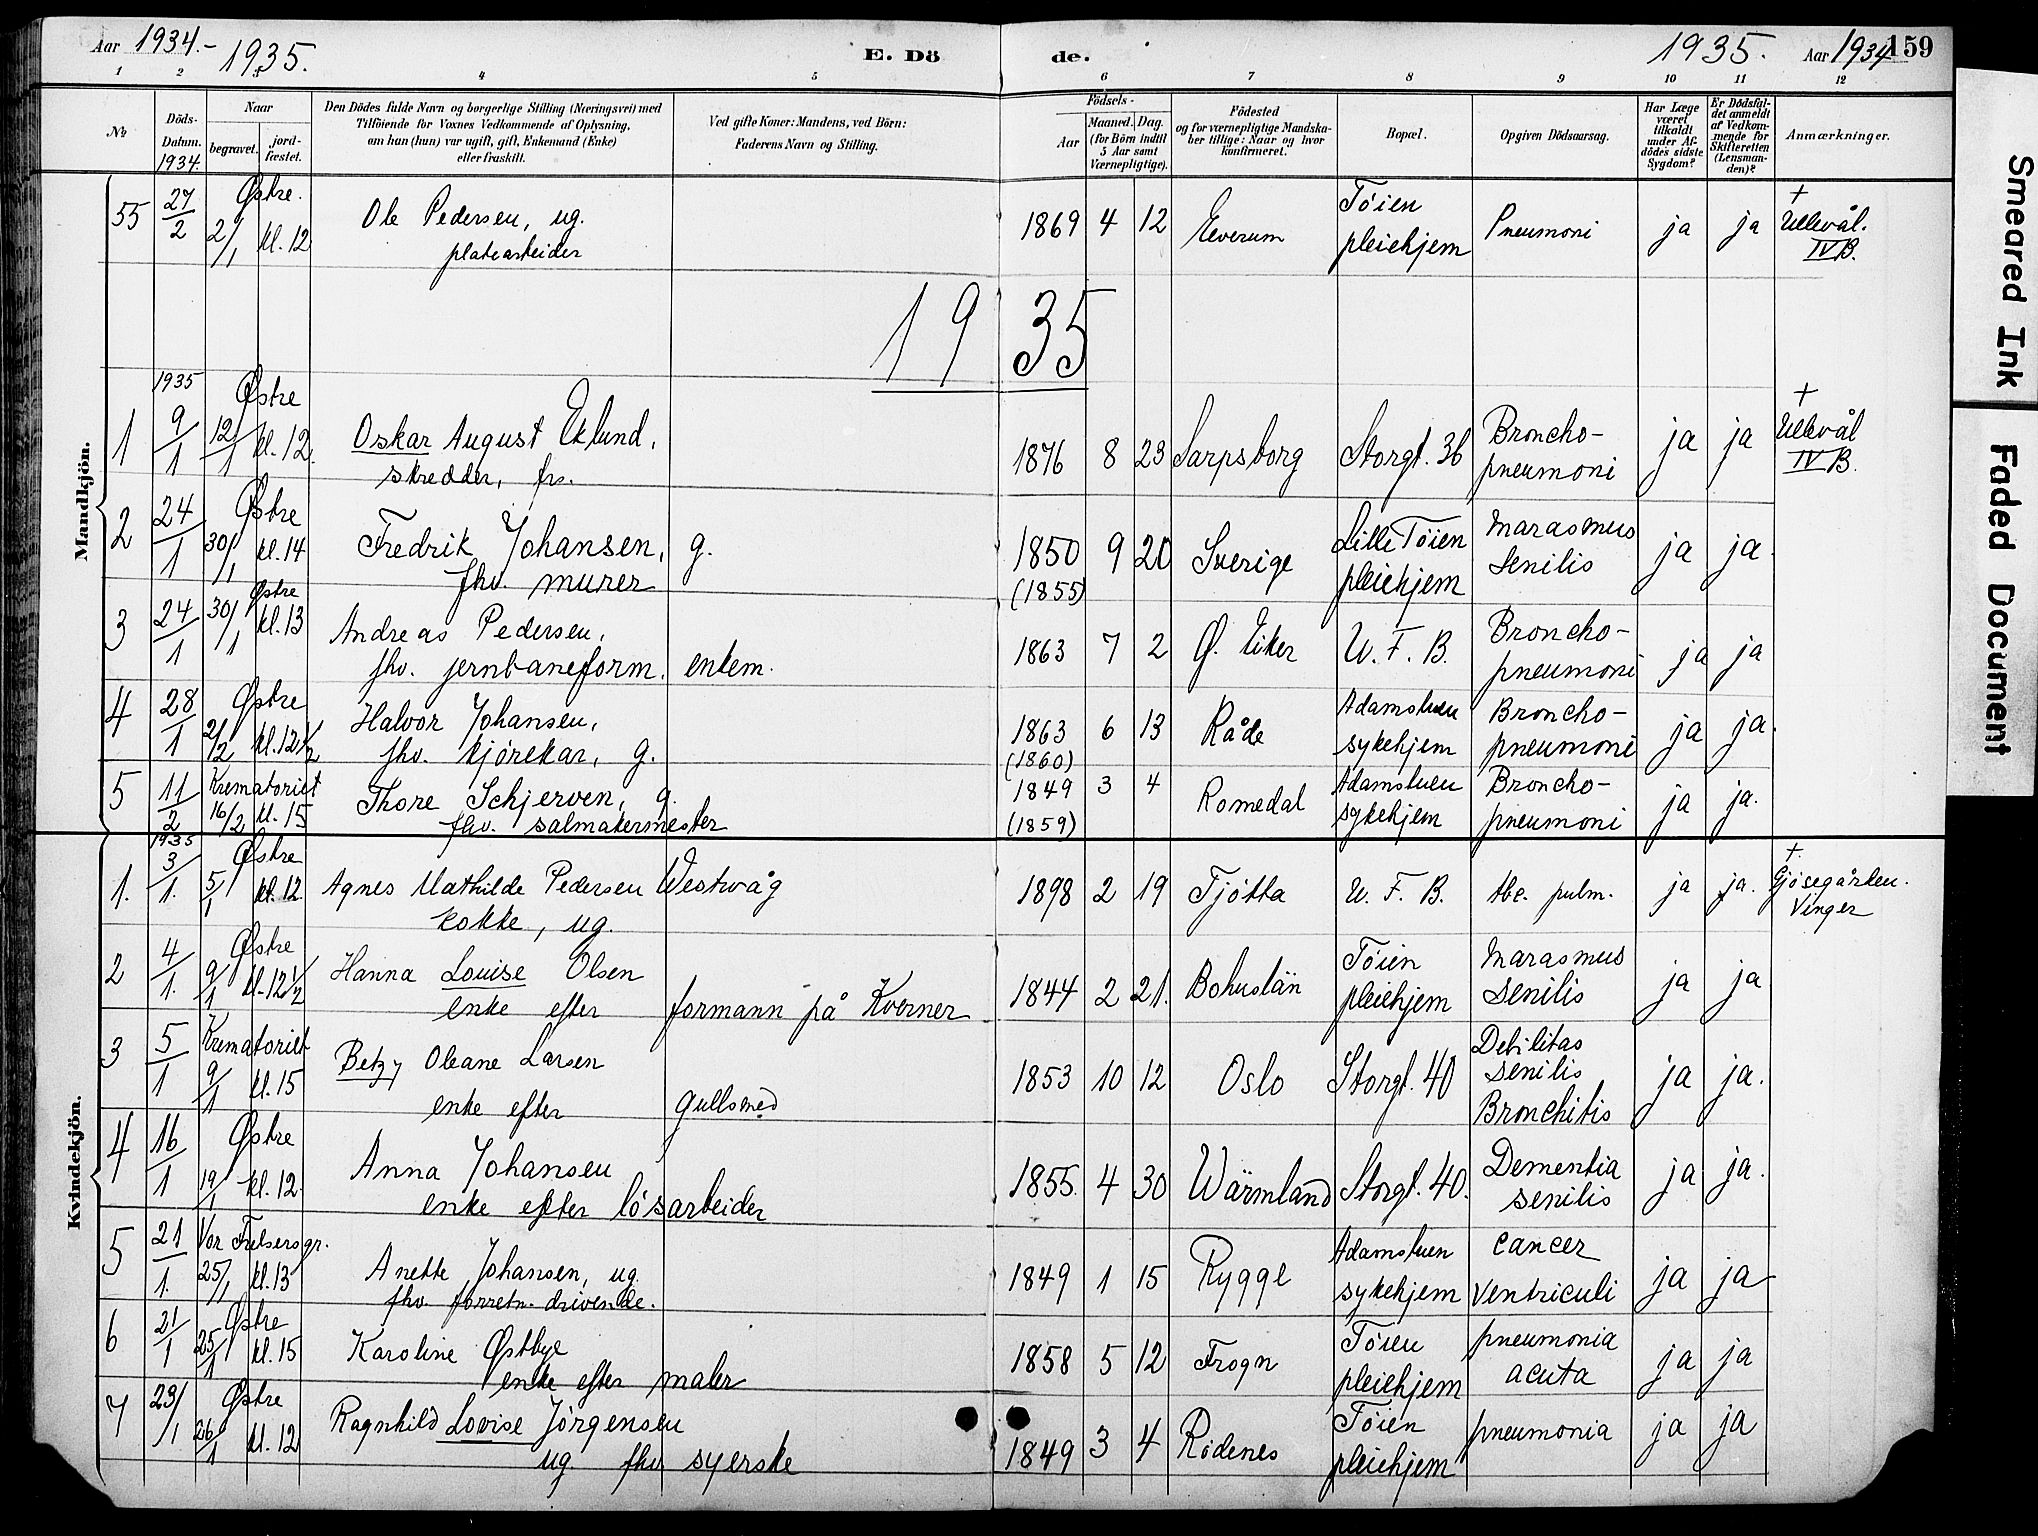 Aar 1934.- 1935. E. Dö de. 1935. Aar 1934 159
1 2 3 4 5 6 7 8 9 10 11 12
No
Döds-Datum. 1934.
Naar
begravet. jordfæstet.
Den Dödes fulde Navn og borgerlige Stilling (Næringsvei) med
Tilföiende for Voxnes Vedkommende af Oplysning,
om han (hun) var ugift, gift, Enkemand (Enke)
eller fraskilt.
Ved gifte Koner: Mandens, ved Börn:
Faderens Navn og Stilling.
Födsels-
Aar Maaned. Dag.
(for Börn indtil
5 Aar samt
Værnepligtige).
Födested
og for værnepligtige Mandska-
ber tillige: Naar og hvor
konfirmeret.
Bopæl.
Opgiven Dödsaarsag.
Har Læge
været
tilkaldt
under Af-
dödes sidste
Sygdom?
Er Dödsfal-
det anmeldt
af Vedkom-
mende for
Skifteretten
(Lensman-
den)?
Anmærkninger.
Mandkjön.
55 27/2 Østre. 2/1 kl. 12 Ole Pedersen, ug. 1869 4 12 Elverum Töien pleiehjem Pneumoni ja ja + Ullevål. IV B.
platearbeider
19 35
1935
1 9/1 Østre 12/1 kl. 12. Oskar August Eklund, 1876 8 23 Sarpsborg Storgt. 36 Broncho-pneumoni ja ja + Ullevål IV B.
skredder, frs.
2 24/1 Østre 30/1 kl. 14 Fredrik Johansen, g. 1850 (1855) 9 20 Sverige Lille Töien pleiehjem Marasmus senilis ja ja.
fhv. murer
3 24/1 Østre 30/1 kl. 13 Andreas Pedersen, 1863 7 2 Ø. Eiker U. F. B. Broncho-pneumoni ja ja
fhv. jernbaneform. enkem.
4 28/1 Østre 2/2 kl. 12 1/2 Halvor Johansen, 1863 (1860) 6 13 Råde Adamstuen sykehjem Broncho-pneumoni ja ja.
fhv. kjörekar, g.
5 11/2 Krematoriet 16/2 kl. 15 Thore Schjerven, g. 1849 (1859) 3 4 Romedal Adamstuen sykehjem Broncho-pneumoni ja ja.
fhv. salmakermester
Kvindekjön.
1935
1. 3/1. Østre 5/1 kl. 12 Agnes Mathilde Pedersen Westvåg 1898 2 19 Tjötta U. F. B. tbc. pulm. ja ja. + Gjösegården. Vinger
kokke, ug.
2 4/1. Østre 9/1 kl. 12 1/2 Hanna Louise Olsen 1844 2 21. Bohuslän Töien pleiehjem Marasmus senilis ja ja
enke efter formann på Kværner
3 5/1 Krematoriet 9/1 kl. 15 Betzy Oleane Larsen 1853 10 12 Oslo Storgt. 40 Debilitas senilis Bronchitis ja ja.
enke efter gullsmed
4 16/1 Østre 19/1 kl. 12. Anna Johansen 1855. 4 30 Wärmland Storgt. 40. Dementia senilis ja ja.
enke efter lösarbeider
5 21/1. Vor Frelsers gr. 25/1 kl. 13 Anette Johansen, ug. 1849 1 15 Rygge Adamstuen sykehjem cancer ventriculi ja ja
fhv. forretn. drivende.
6 21/1 Østre 25/1 kl. 15 Karoline Østbye 1858 5 12 Frogn Töien pleiehjem pneumonia acuta ja ja
enke efter maler
7 23/1 Østre 26/1 kl. 12 Ragnhild Lovise Jörgensen 1849 3 4 Rödenes Töien pleiehjem pneumonia ja ja
ug fhv syerske
Smeared Ink
Faded Document